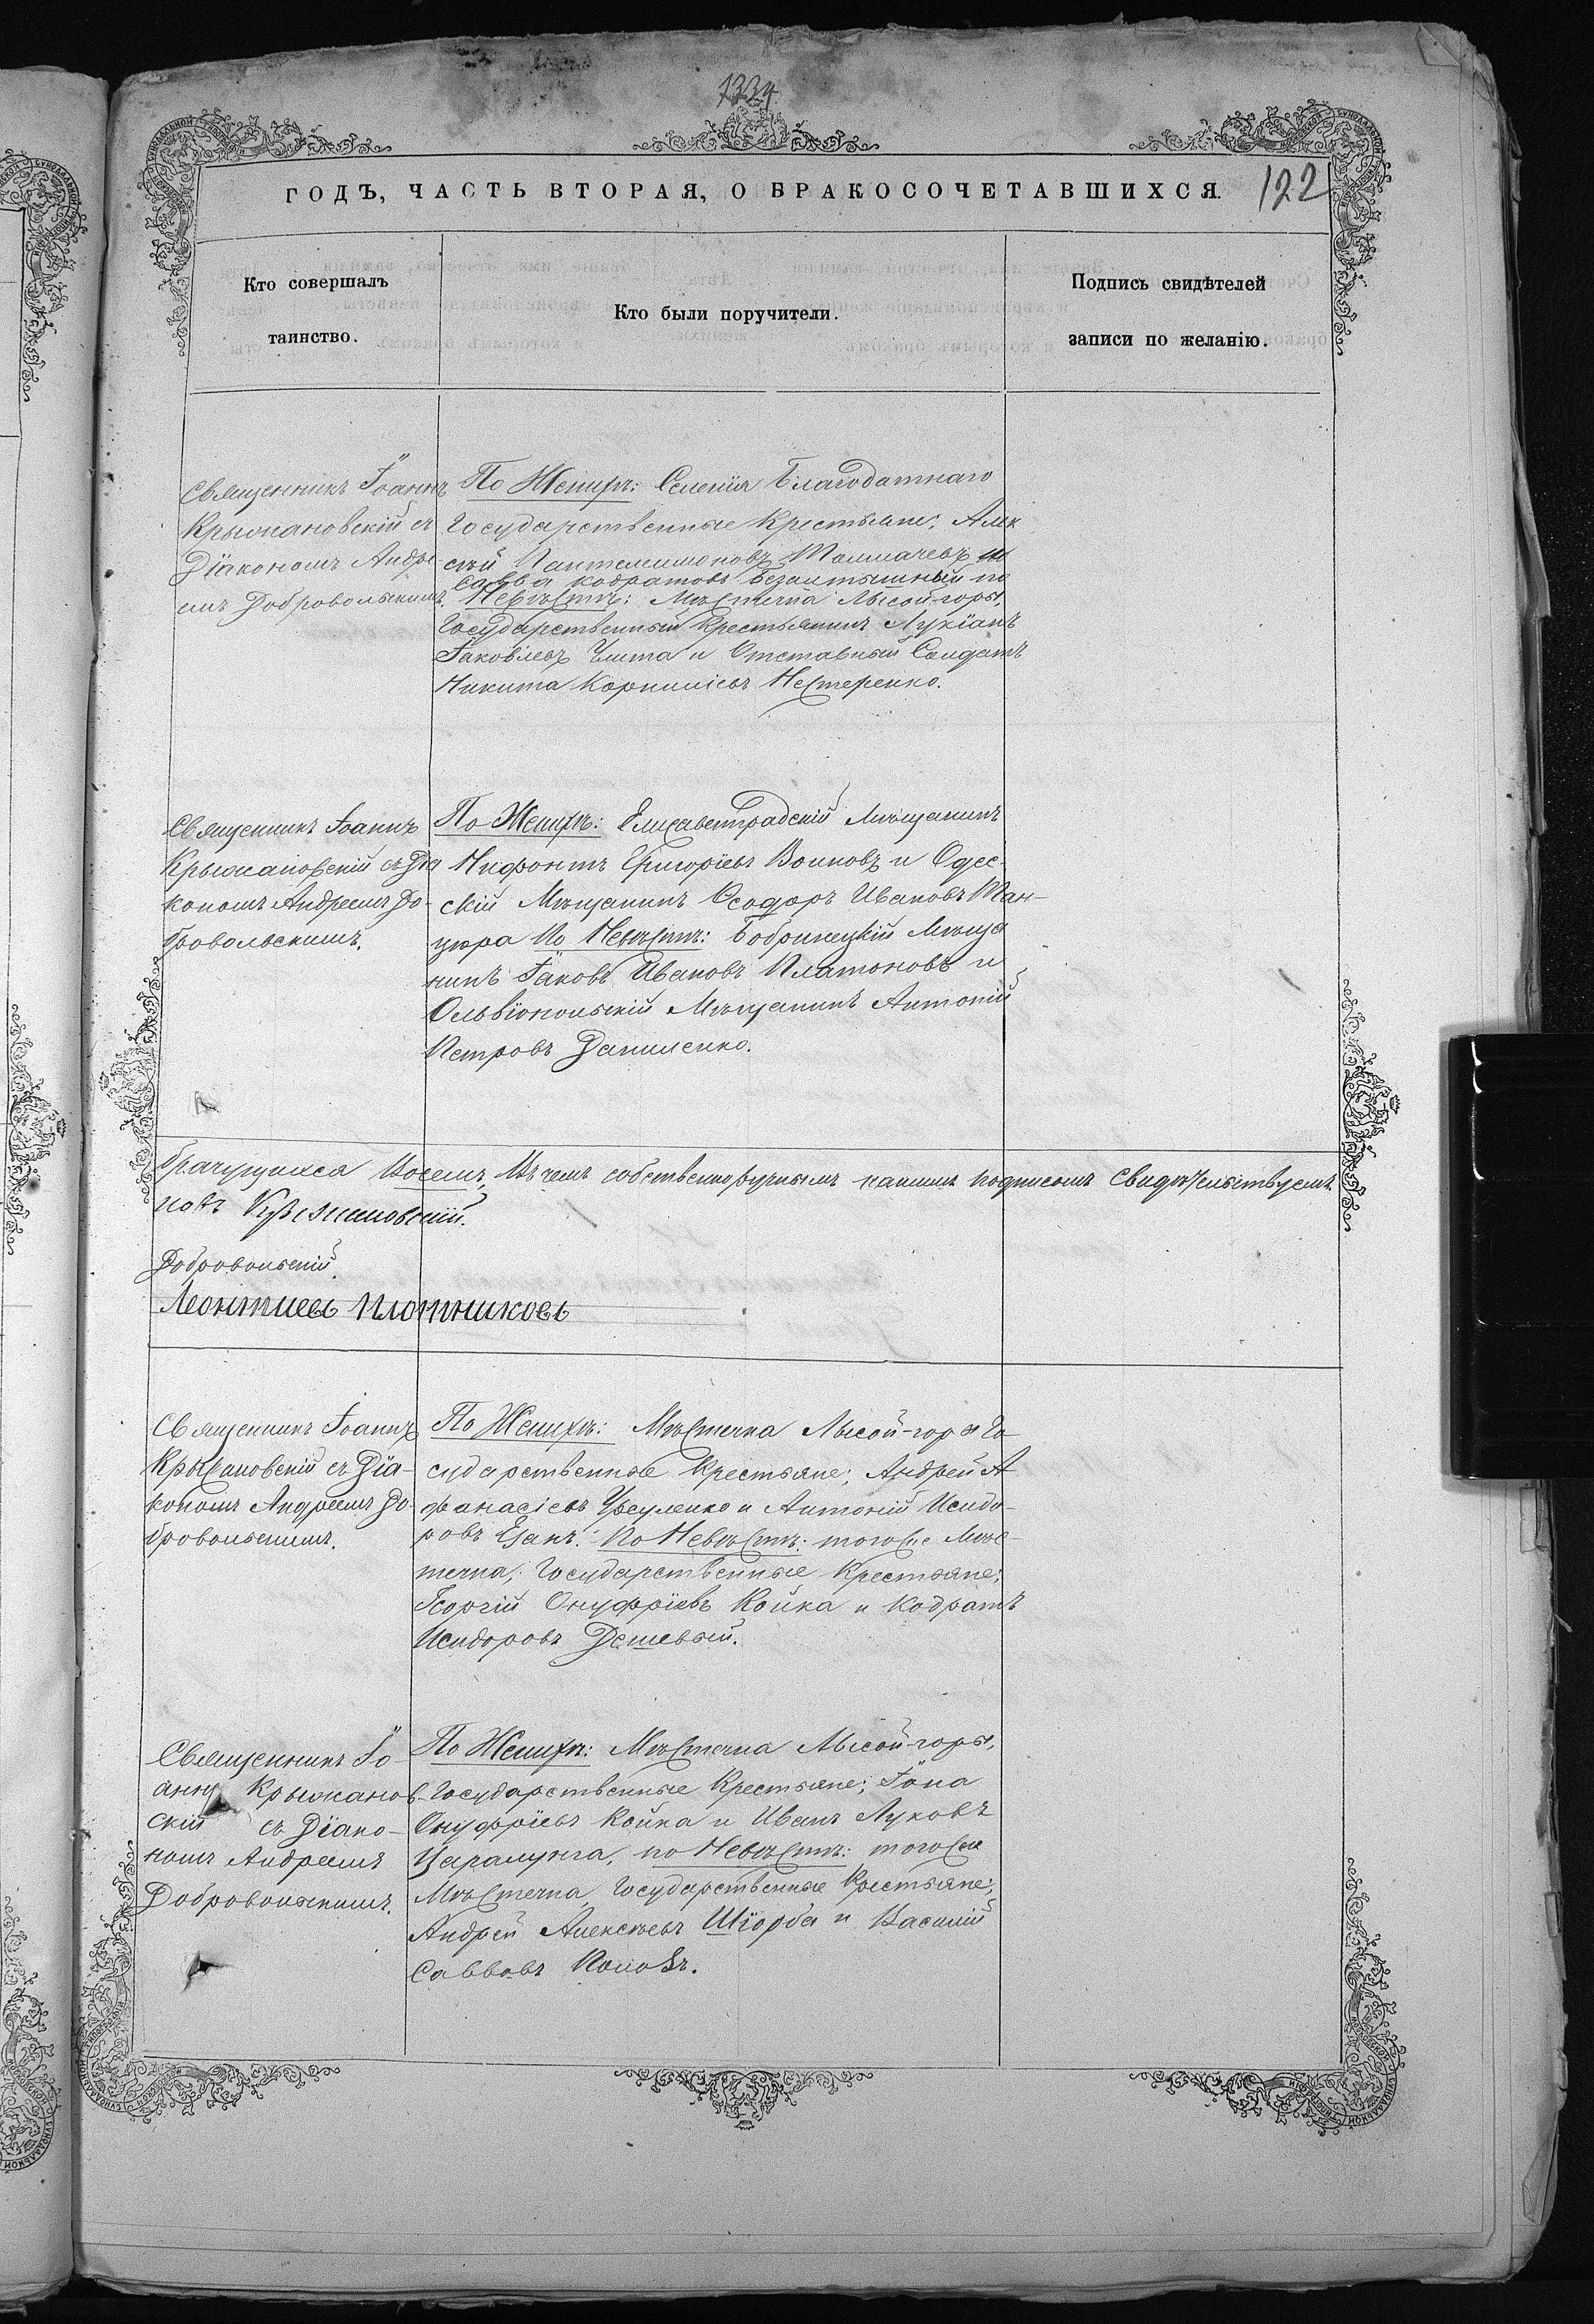 1334
ГОДЪ, ЧАСТЬ ВТОРАЯ, О БРАКОСОЧЕТАВШИХСЯ.
122
Кто совершалъ
таинство.
Кто были поручители.
Подпись свидѣтелей
записи по желанію.
Священникъ Іоаннъ
Крыжановскій съ
Діакономъ Андре
емъ Добровольскимъ.
По Женихѣ: Селенія Благодатнаго
Государственные Крестьяне: Алек
сѣй Пантелеимоновъ Толмачевъ и
Савва Кодратовъ по
Невѣстѣ: Мѣстечка Лысой-горы,
Государственный Крестьянинъ Лукіанъ
Іаковлевъ Чмта и Отставный Солдатъ
Никита Корнилiевъ Нестеренко.
Священникъ Іоаннъ
Крыжановскій съ Діа
кономъ Андреемъ До-
бровольскимъ.
По Женихѣ: Елисаветградскій Мѣщанинъ
Нифонтъ Григоріевъ Воиновъ и Одес
скій Мѣщанинъ Ѳеодоръ Ивановъ Тан-
цюра По Невѣстѣ: Бобринецкій Мѣща
нинъ Іаковъ Ивановъ Платоновъ и
Ольвіопольскій Мѣщанинъ Антоній
Петровъ Даниленко.
брачущихся Восемь, Въ чемъ собственноручнымъ нашимъ подписомъ Свидѣтельствуемъ.
новъ Крыжановскій.
Добровольскій
Леонтиевъ Плотниковъ
Священникъ Іоаннъ
Крыжановскій съ Діа-
кономъ Андреемъ До-
бровольскимъ.
По Женихѣ: Мѣстечка Лысой-горы Го
сударственные Крестьяне; Андрей А
фанасіевъ и Антоній Исидо-
ровъ По Невѣстѣ: тогоже Мѣс-
течка, Государственные Крестьяне;
Георгій Онуфріевъ Койка и Кодратъ
Исидоровъ Дешевый.
Священникъ Іо-
аннъ Крыжанов-
скій съ Діако-
номъ Андреемъ
Добровольскимъ.
По Женихѣ: Мѣстечка Лысой-горы,
Государственные Крестьяне; Іона
Онуфріевъ Койка и Иванъ Луковъ
Царалунга, по Невѣстѣ: тогоже
Мѣстечка, Государственные Крестьяне;
Андрей Алексѣевъ Шіорба и Василій
Саввовъ Поповъ.